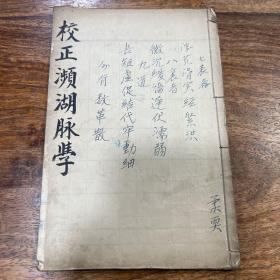 校正瀕湖脉學
七表者
浮芤滑实弦紧洪
八裏者
微沉緩濇遲伏濡弱
九道
長短虛促結代牢動細
有数革散
柔